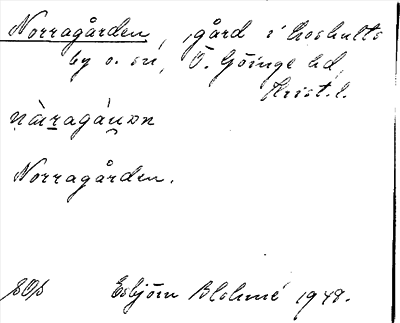 Norragården, gård i Loshults
by o. sn, Ö. Göinge hd,
Krist. l.
nàragáɳən
Norragården.
Esbjörn Blohmé 1948.